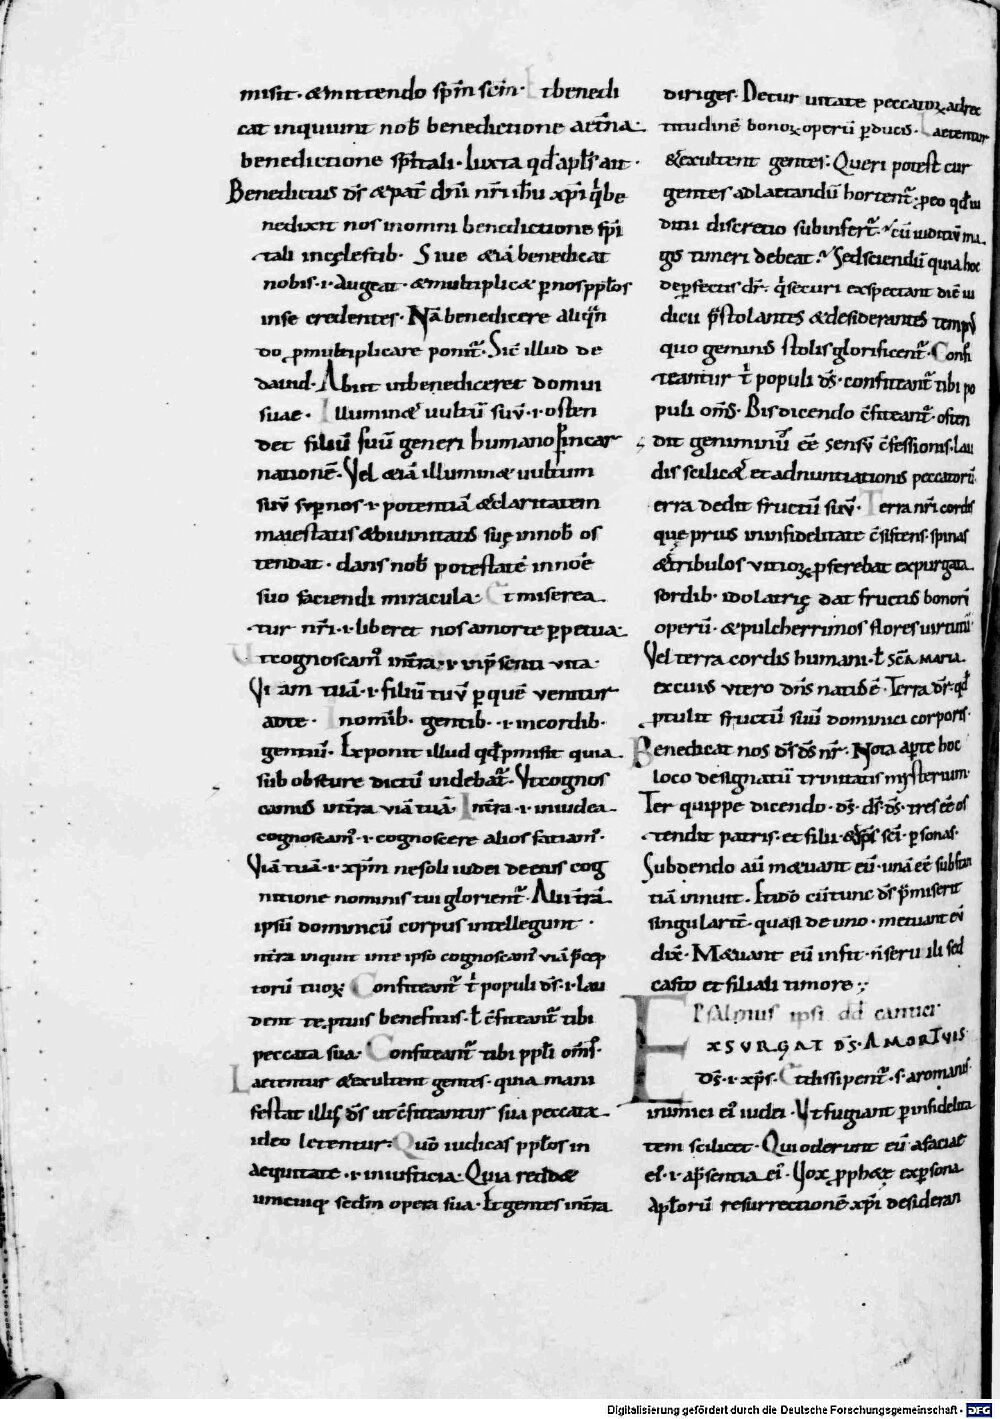 misit · & mittendo spm̄ scm̄ · Et benedi
cat inquiunt nob̄ benedictione aet̄na
benedictione sp̄itali · Iuxta qd̄ apl̄s ait ·
Benedictus ds̄ & pat̄ dn̄i nr̄i ih̄u xp̄i qͥ be
nedixit nos in omni benedictione sp̄i
tali in cęlestib · Siue & iā benedicat
nobis · i · Augeat · & multiplic& p nos pplos
in se credentes · Nā benedicere aliqn̄
do p multiplicare ponit̄ · Sic̄ illud de
dauid · Abiit ut benediceret domui
suae · Illumin& uultū suū · i · osten
det filiū suū generi humano p incar
nationē · Vel & iā illumin& uultum
suū sup nos · i · potentiā & claritatem
maiestatis & diuinitatis suę in nob̄ os
tendat · dans nob̄ potestatē in noīe
suo faciendi miracula · Et miserea
tur nr̄i · i · liberet nos a morte perpetua
Ut cognoscam' in t̄ra · i · in p̄senti vita ·
Viam tuā · i · filiū tuū p quē venitur
ad te · In omīb · gentib · · i · in cordib ·
gentiū · Exponit illud qd̄ p̄misit quia
sub obscure dictū videbat̄ · Vt cognos
camus in t̄ra viā tuā · In t̄ra · i · in iudea
cognoscam' · i · cognoscere alios faciam' ·
Viā tuā · i · xp̄m ne soli iudei de eius cog
nitione nominis tui glorient̄ · Alii t̄rā
ipsū dominicū corpus intellegunt ·
nr̄a inquit in te ipso cognoscam' viā p̄cep
torū tuoꝝ · Confiteant̄ tͥ populi ds̄ · i · Lau
dent te p tuis beneficiis · ł c̄fiteant̄ tibi
peccata sua · Confiteant̄ tibi ppl̄i om̄s ·
Laetentur & exultent gentes · quia mani
festat illis ds̄ ut c̄fiteantur sua peccata
ideo letentur · Quō iudicas pplos in
aequitate · i · in iusticia · Quia redd&
unicuiq; scdm opera sua · Et gentes in t̄ra
diriges · Detur uitate peccatoꝝ ad rec
titudinē bonoꝝ operū p ducis · Laetentur
& exultent gentes · Queri potest cur
gentes ad laetandū hortent̄ · p eo qd̄ iu
dicii discretio subinfert̄ · cū iudiciū ma
gis timeri debeat · Sed sciendū quia hoc
de p fectis dr̄ · qͥ securi exspectant diē iu
dicii p̄stolantes & desiderantes tempus
quo geminis stolis glorificent̄ · Confi
teantur tͥ populi ds̄ · confiteant̄ tibi po
puli om̄s · Bis dicendo c̄fiteant̄ · osten
dit geminū eē sensū c̄fessionis · lau
dis scilic& et adnuntiationis peccatorū
erra dedit fructū suū · Terra nr̄i cordis
que prius in infidelitate c̄sistens · spinas
& tribulos vitioꝝ p ferebat expurgata
sordib · idolatrię dat fructus bonorū
operū · & pulcherrimos flores uirtutū
Vel terra cordis humani · ł sc̄a maria
ex cuius vtero dn̄s natus ē · Terra dr̄ · qd̄
p tulit fructū suū dominici corporis ·
Benedicat nos ds̄ ds̄ nr̄ · Nota aperte hoc
loco designatū trinitatis mysterium ·
Ter quippe dicendo · ds̄ · ds̄ · ds̄ · tres eē os
tendit patris · et filii · & sp̄s sc̄i · psonas ·
Subdendo aū m&uant eū · unā eē substan
tiā innuit · Et ideo cū tunc ds̄ p̄miserit
singularit̄ · quasi de uno · metuant eū
dix̄ · M&uant eū infit · n̄ seruili sed
casto et filiali timore ·
Psalmus ipsi dd cantici
EXSVRGAT DS̄ · A MORTVIS
Ds̄ · i · xp̄s · Et dissipent̄ · s · a romanis
inimici ei' iudei · Vt fugiant p infidelita
tem scilicet · Qui oderunt eū a faciae
ei' · i · a p̄sentia ei' · Vox p ph&ae ex psona
apl̄orū resurrectionē xp̄i desideran
Digitalisierung gefördert durch die Deutsche Forschungsgemeinschaft - DFG